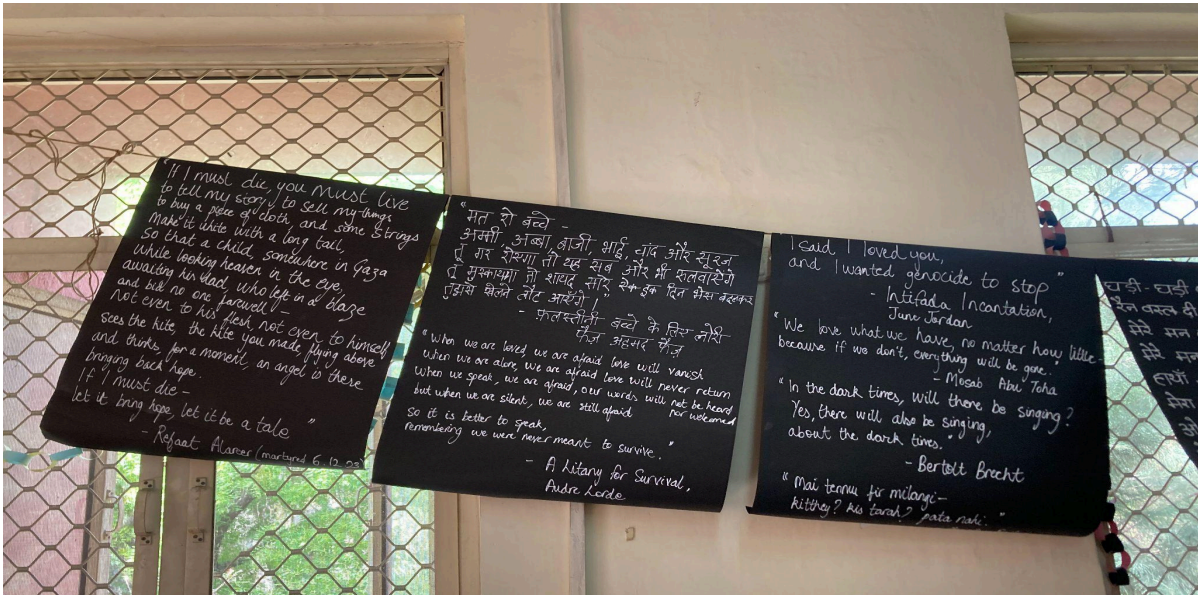 "If I must die, you must live
to tell my story, to sell my things
to buy a piece of cloth and some strings
make it white with a long tail,
so that a child, somewhere in Gaza
while looking heaven in the eye,
awaiting his dad who left in a blaze
and bid no one farewell –
not even to his flesh not even to himself
sees the kite, the kite you made flying above
and thinks, for a moment, an angel is there
bringing back hope.
If I must die –
let it bring hope, let it be a tale"
- Refaat Alareer (martyred 6.12.23)
"मत रो बच्चे -
अम्मी, अब्बा, बाजी, भाई, चांद और सूरज
तू गर रोएगा तो यह सब और भी रुलवाएंगे
तू मुस्कायगा तो शायद सारे इक दिन भेस बदलकर
तुझसे खेलने लौट आएंगे।"
- फ़लस्तीनी बच्चे के लिए लोरी
फ़ैज़ अहमद फ़ैज़
"When we are loved, we are afraid love will vanish
when we are alone, we are afraid love will never return
when we speak, we are afraid, our words will not be heard
nor welcomed
but when we are silent, we are still afraid
so it is better to speak,
remembering we were never meant to survive."
- A Litany for Survival,
Audre Lorde
I said I loved you,
and I wanted genocide to stop"
- Intifada Incantation,
June Jordan
"We love what we have, no matter how little -
because if we don't, everything will be gone."
- Mosab Abu Toha
"In the dark times, will there be singing?
Yes, there will also be singing,
about the dark times."
- Bertolt Brecht
"Mai tennu fir milangi –
kitthey? kis tarah? pata nahi."
घड़ी - घड़ी
मेरे मन
मेरे